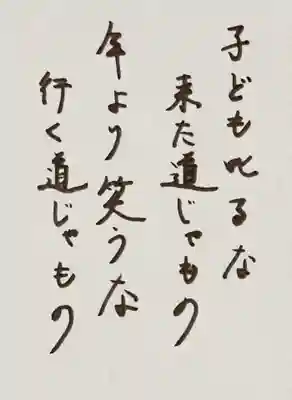 子ども叱るな
来た道じゃもの
年より笑うな
行く道じゃもの